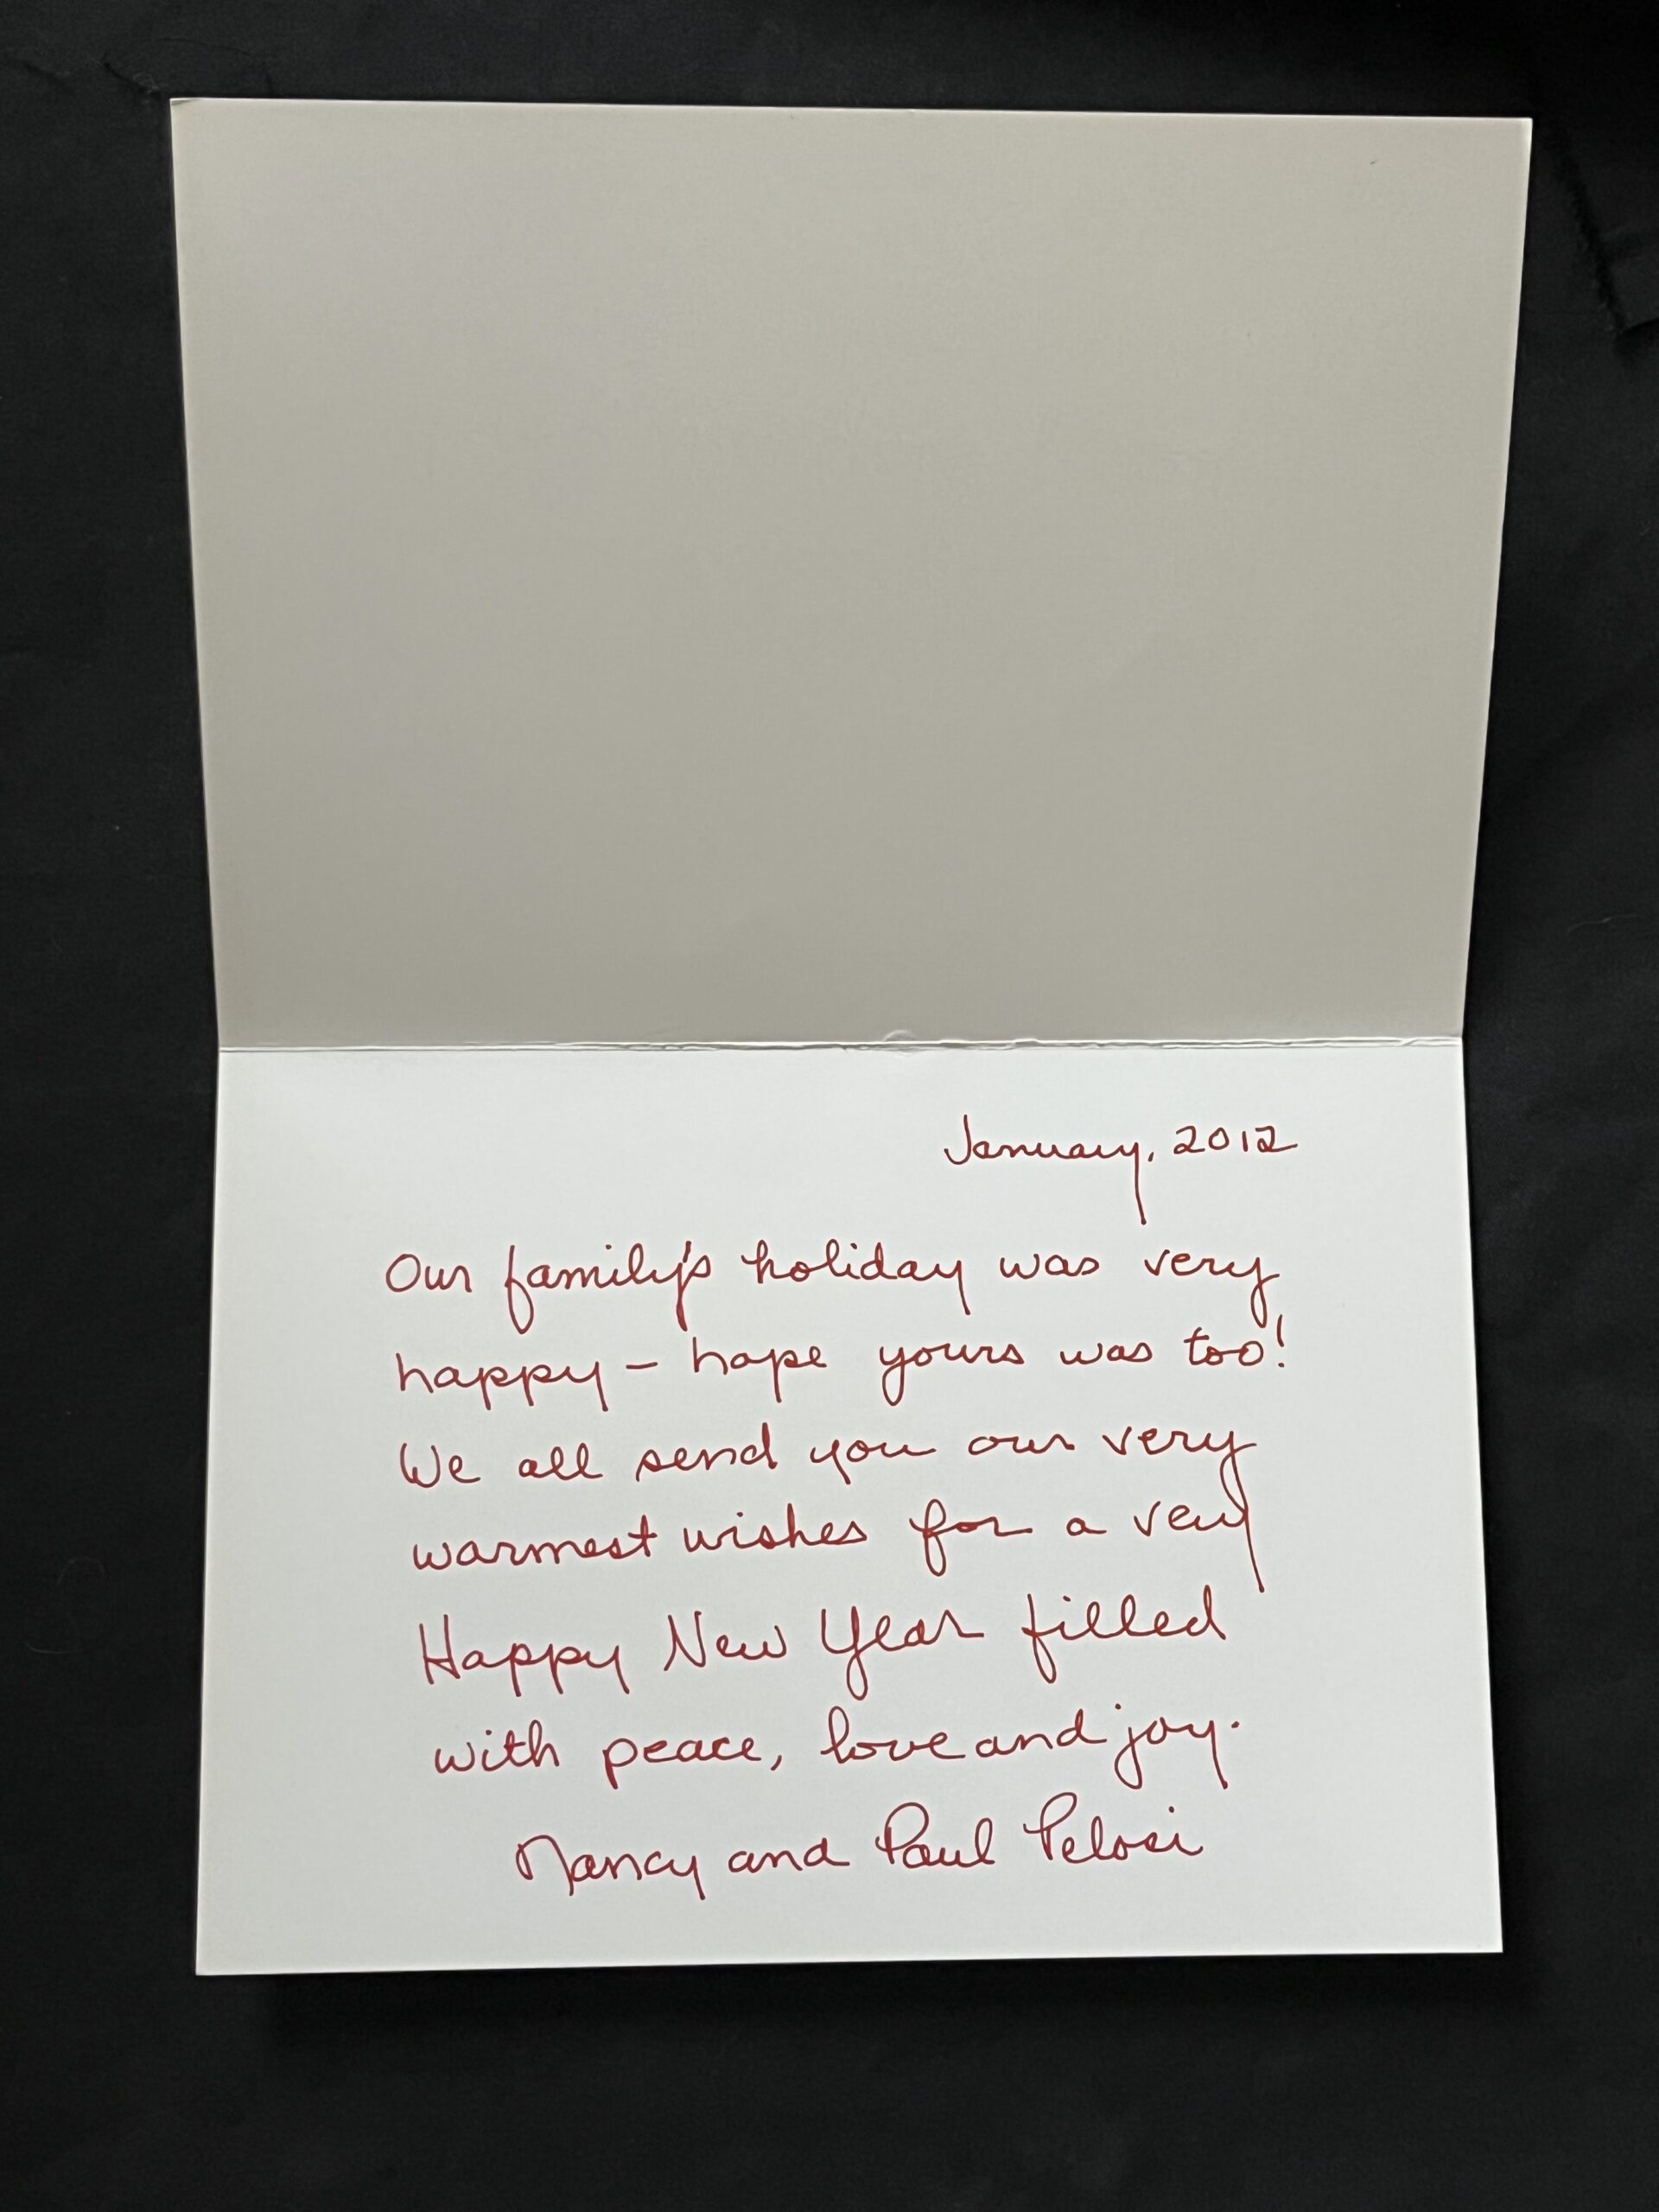 January, 2012
Our family's holiday was very
happy – hope yours was too!
We all send you our very
warmest wishes for a very
Happy New Year filled
with peace, love and joy.
Nancy and Paul Pelosi